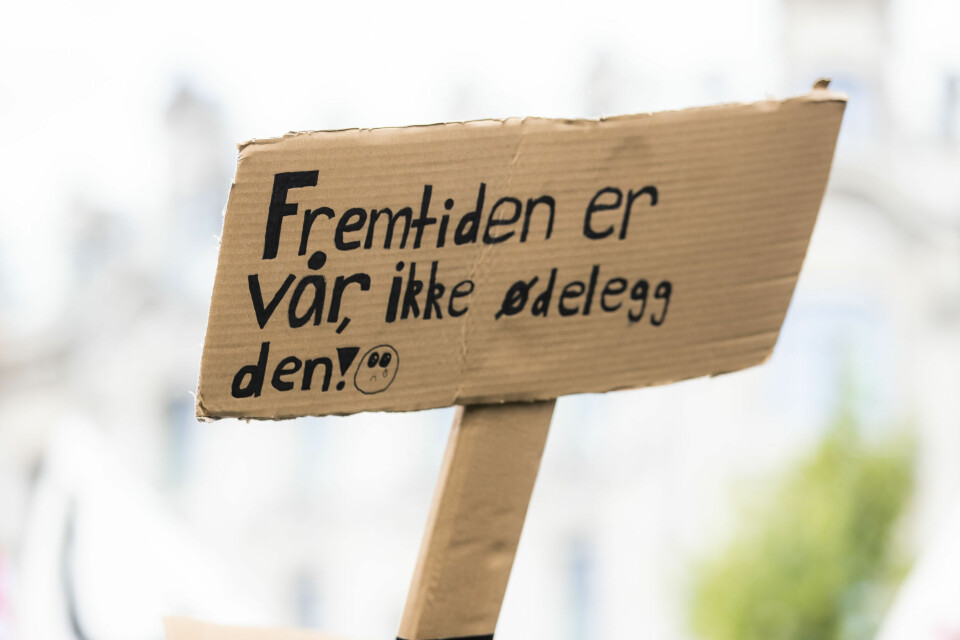 Fremtiden er
vår, ikke ødelegg
den!